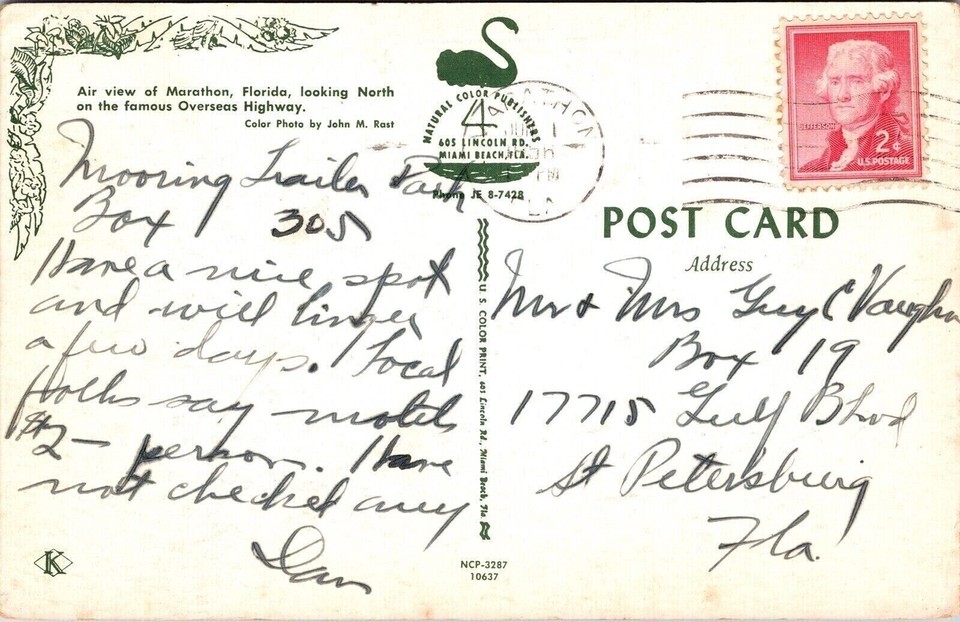 Air view of Marathon, Florida, looking North
on the famous Overseas Highway.
Color Photo by John M. Rast
NATURAL COLOR PUBLISHERS
605 LINCOLN RD.
MIAMI BEACH, FLA.
Phone JE 8-7428
MARATHON
JUN 1
PM
FLA
JEFFERSON
2¢
U.S. POSTAGE
POST CARD
Address
Mooring Trailer Park
Box 305
Have a nice spot
and will linger
a few days. Local
folks say motels
$2- person. Have
not checked any
Dan
U S COLOR PRINT, 605 Lincoln Rd., Miami Beach, Fla
Mr & Mrs Guy C Vaughn
Box 19
17715 Gulf Blvd
St Petersburg
Fla.
K
NCP-3287
10637